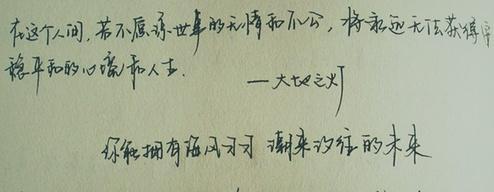 在这个人间,若不原谅世事的无情和不公,将永远无法获得安
稳平和的心境和人生.
——大地之灯
你能拥有海风习习 潮来汐往的未来